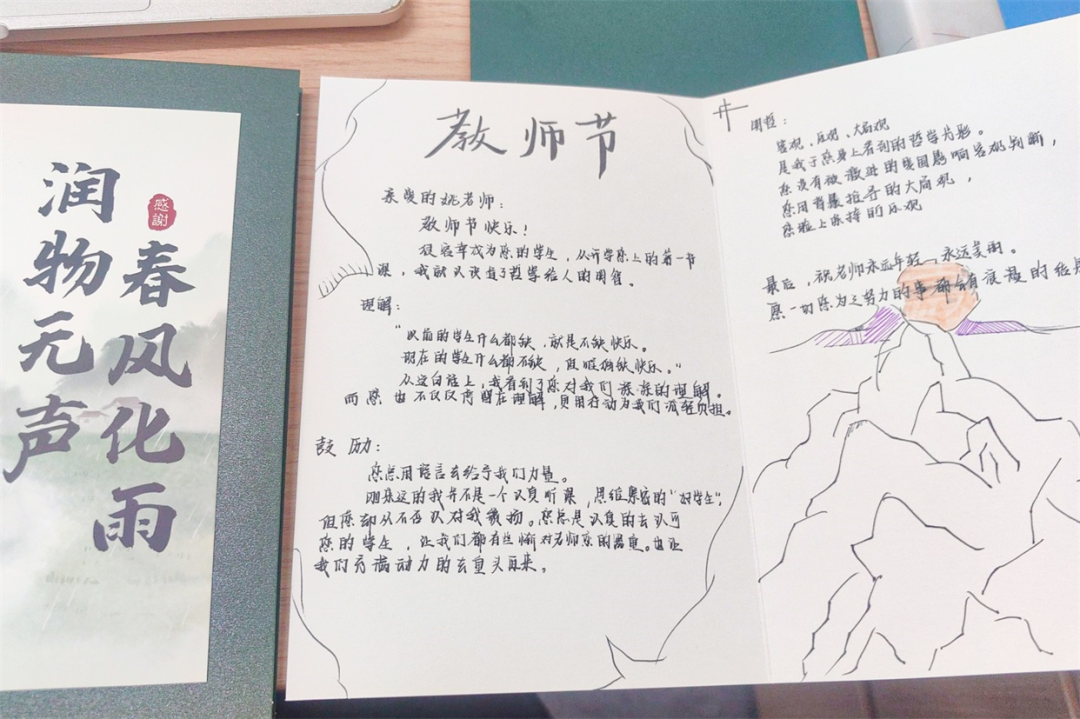 春风化雨
润物无声
感謝
教师节
亲爱的姚老师：
教师节快乐！
很容幸成为您的学生，从开学您上的第一节
课，我就认识到了哲学给人的用智。
理解：
"以前的学生什么都缺，就是不缺快乐。
现在的学生什么都不缺，但唯独缺快乐。"
从这句话上，我看到了您对我们 的理解。
而您 也不仅仅 在理解，更用行动为我们减轻负担。
鼓励：
您总用语言去给予我们力量。
的我并不是一个认真听课，思维 的"好学生"，
但您却从不 对我 。您总是认真的去认可
您的学生，让我们都有些愧对老师 的 。也让
我们充满动力的去重头再来。
乐观、大局观
是我于您身上看到的哲学片影。
您没有被 的 影响客观判断，
您用 的大局观，
您脸上 的乐观
最后，祝老师永远年轻，永远美丽。
愿一切您为之努力的事都会有浪漫的结局